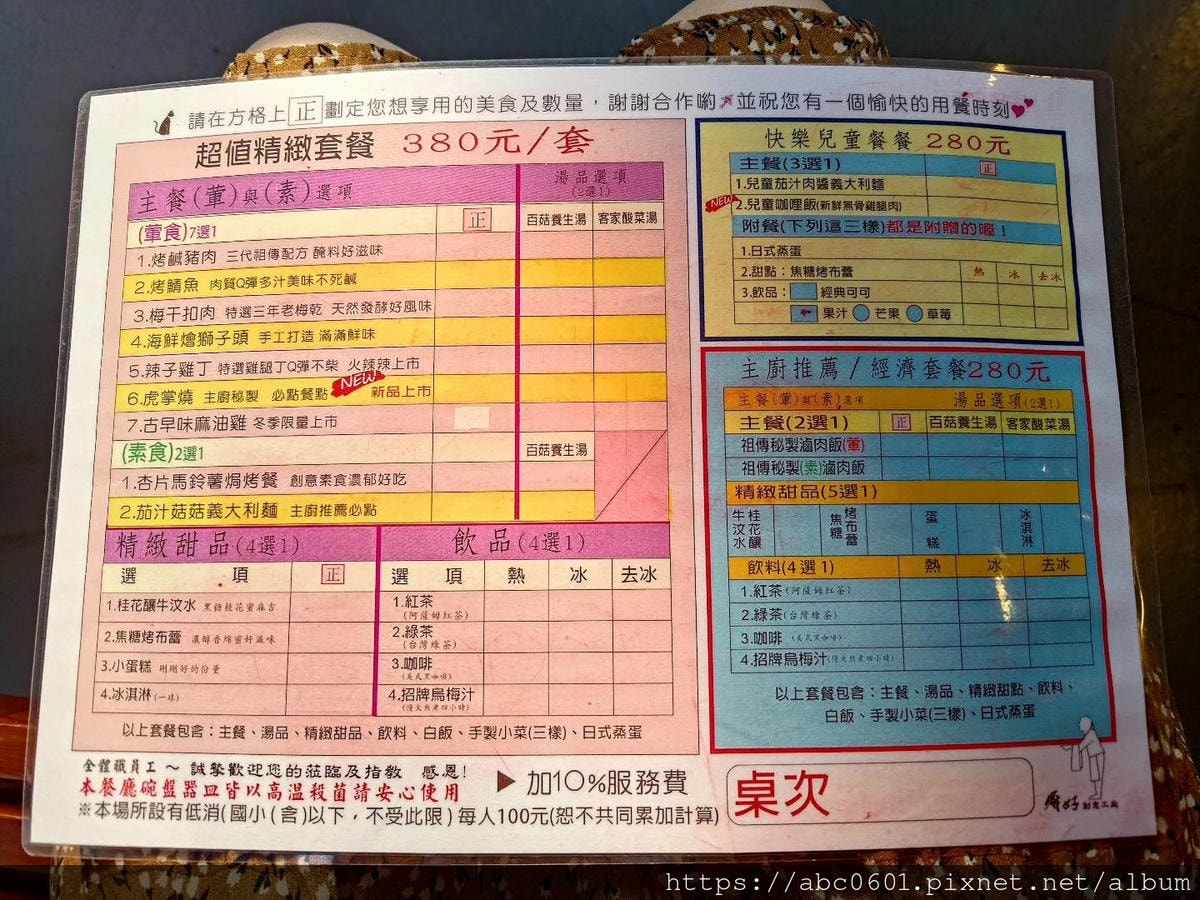 請在方格上正劃定您想享用的美食及數量，謝謝合作喲 並祝您有一個愉快的用餐時刻
超值精緻套餐 380元/套
主餐(葷)與(素)選項
湯品選項
(2選1)
(葷食)7選1 正 百菇養生湯 客家酸菜湯
1.烤鹹豬肉 三代祖傳配方 醃料好滋味
2.烤鯖魚 肉質Q彈多汁美味不死鹹
3.梅干扣肉 特選三年老梅乾 天然發酵好風味
4.海鮮燴獅子頭 手工打造 滿滿鮮味
5.辣子雞丁 特選雞腿丁Q彈不柴 火辣辣上市
6.虎掌燒 主廚秘製 必點餐點 NEW 新品上市
7.古早味麻油雞 冬季限量上市
(素食)2選1 百菇養生湯
1.杏片馬鈴薯焗烤餐 創意素食濃郁好吃
2.茄汁菇菇義大利麵 主廚推薦必點
精緻甜品(4選1)
選 項 正
1.桂花釀牛汶水 黑糖桂花蜜麻吉
2.焦糖烤布蕾 濃醇香綿密好滋味
3.小蛋糕 剛剛好的份量
4.冰淇淋(一球)
飲品(4選1)
選 項 熱 冰 去冰
1.紅茶
(阿薩姆紅茶)
2.綠茶
(台灣綠茶)
3.咖啡
(美式黑咖啡)
4.招牌烏梅汁
(慢火熬煮四小時)
以上套餐包含：主餐、湯品、精緻甜品、飲料、白飯、手製小菜(三樣)、日式蒸蛋
快樂兒童餐餐 280元
主餐(3選1) 正
1.兒童茄汁肉醬義大利麵
NEW 2.兒童咖哩飯(新鮮無骨雞腿肉)
附餐(下列這三樣)都是附贈的喔！
1.日式蒸蛋
2.甜點：焦糖烤布蕾 熱 冰 去冰
3.飲品： 經典可可
果汁 芒果 草莓
主廚推薦/經濟套餐280元
主餐(葷)與(素)選項 湯品選項(2選1)
主餐(2選1) 正 百菇養生湯 客家酸菜湯
祖傳秘製滷肉飯(葷)
祖傳秘製(素)滷肉飯
精緻甜品(5選1)
桂花釀牛汶水 焦糖烤布蕾 蛋糕 冰淇淋
飲料(4選1) 熱 冰 去冰
1.紅茶(阿薩姆紅茶)
2.綠茶(台灣綠茶)
3.咖啡 (美式黑咖啡)
4.招牌烏梅汁(慢火熬煮四小時)
以上套餐包含：主餐、湯品、精緻甜點、飲料、
白飯、手製小菜(三樣)、日式蒸蛋
全體職員工～誠摯歡迎您的蒞臨及指教 感恩！
本餐廳碗盤器皿皆以高溫殺菌請安心使用
▶加10%服務費
※本場所設有低消(國小(含)以下，不受此限)每人100元(恕不共同累加計算)
桌次
創意工廠
https://abc0601.pixnet.net/album